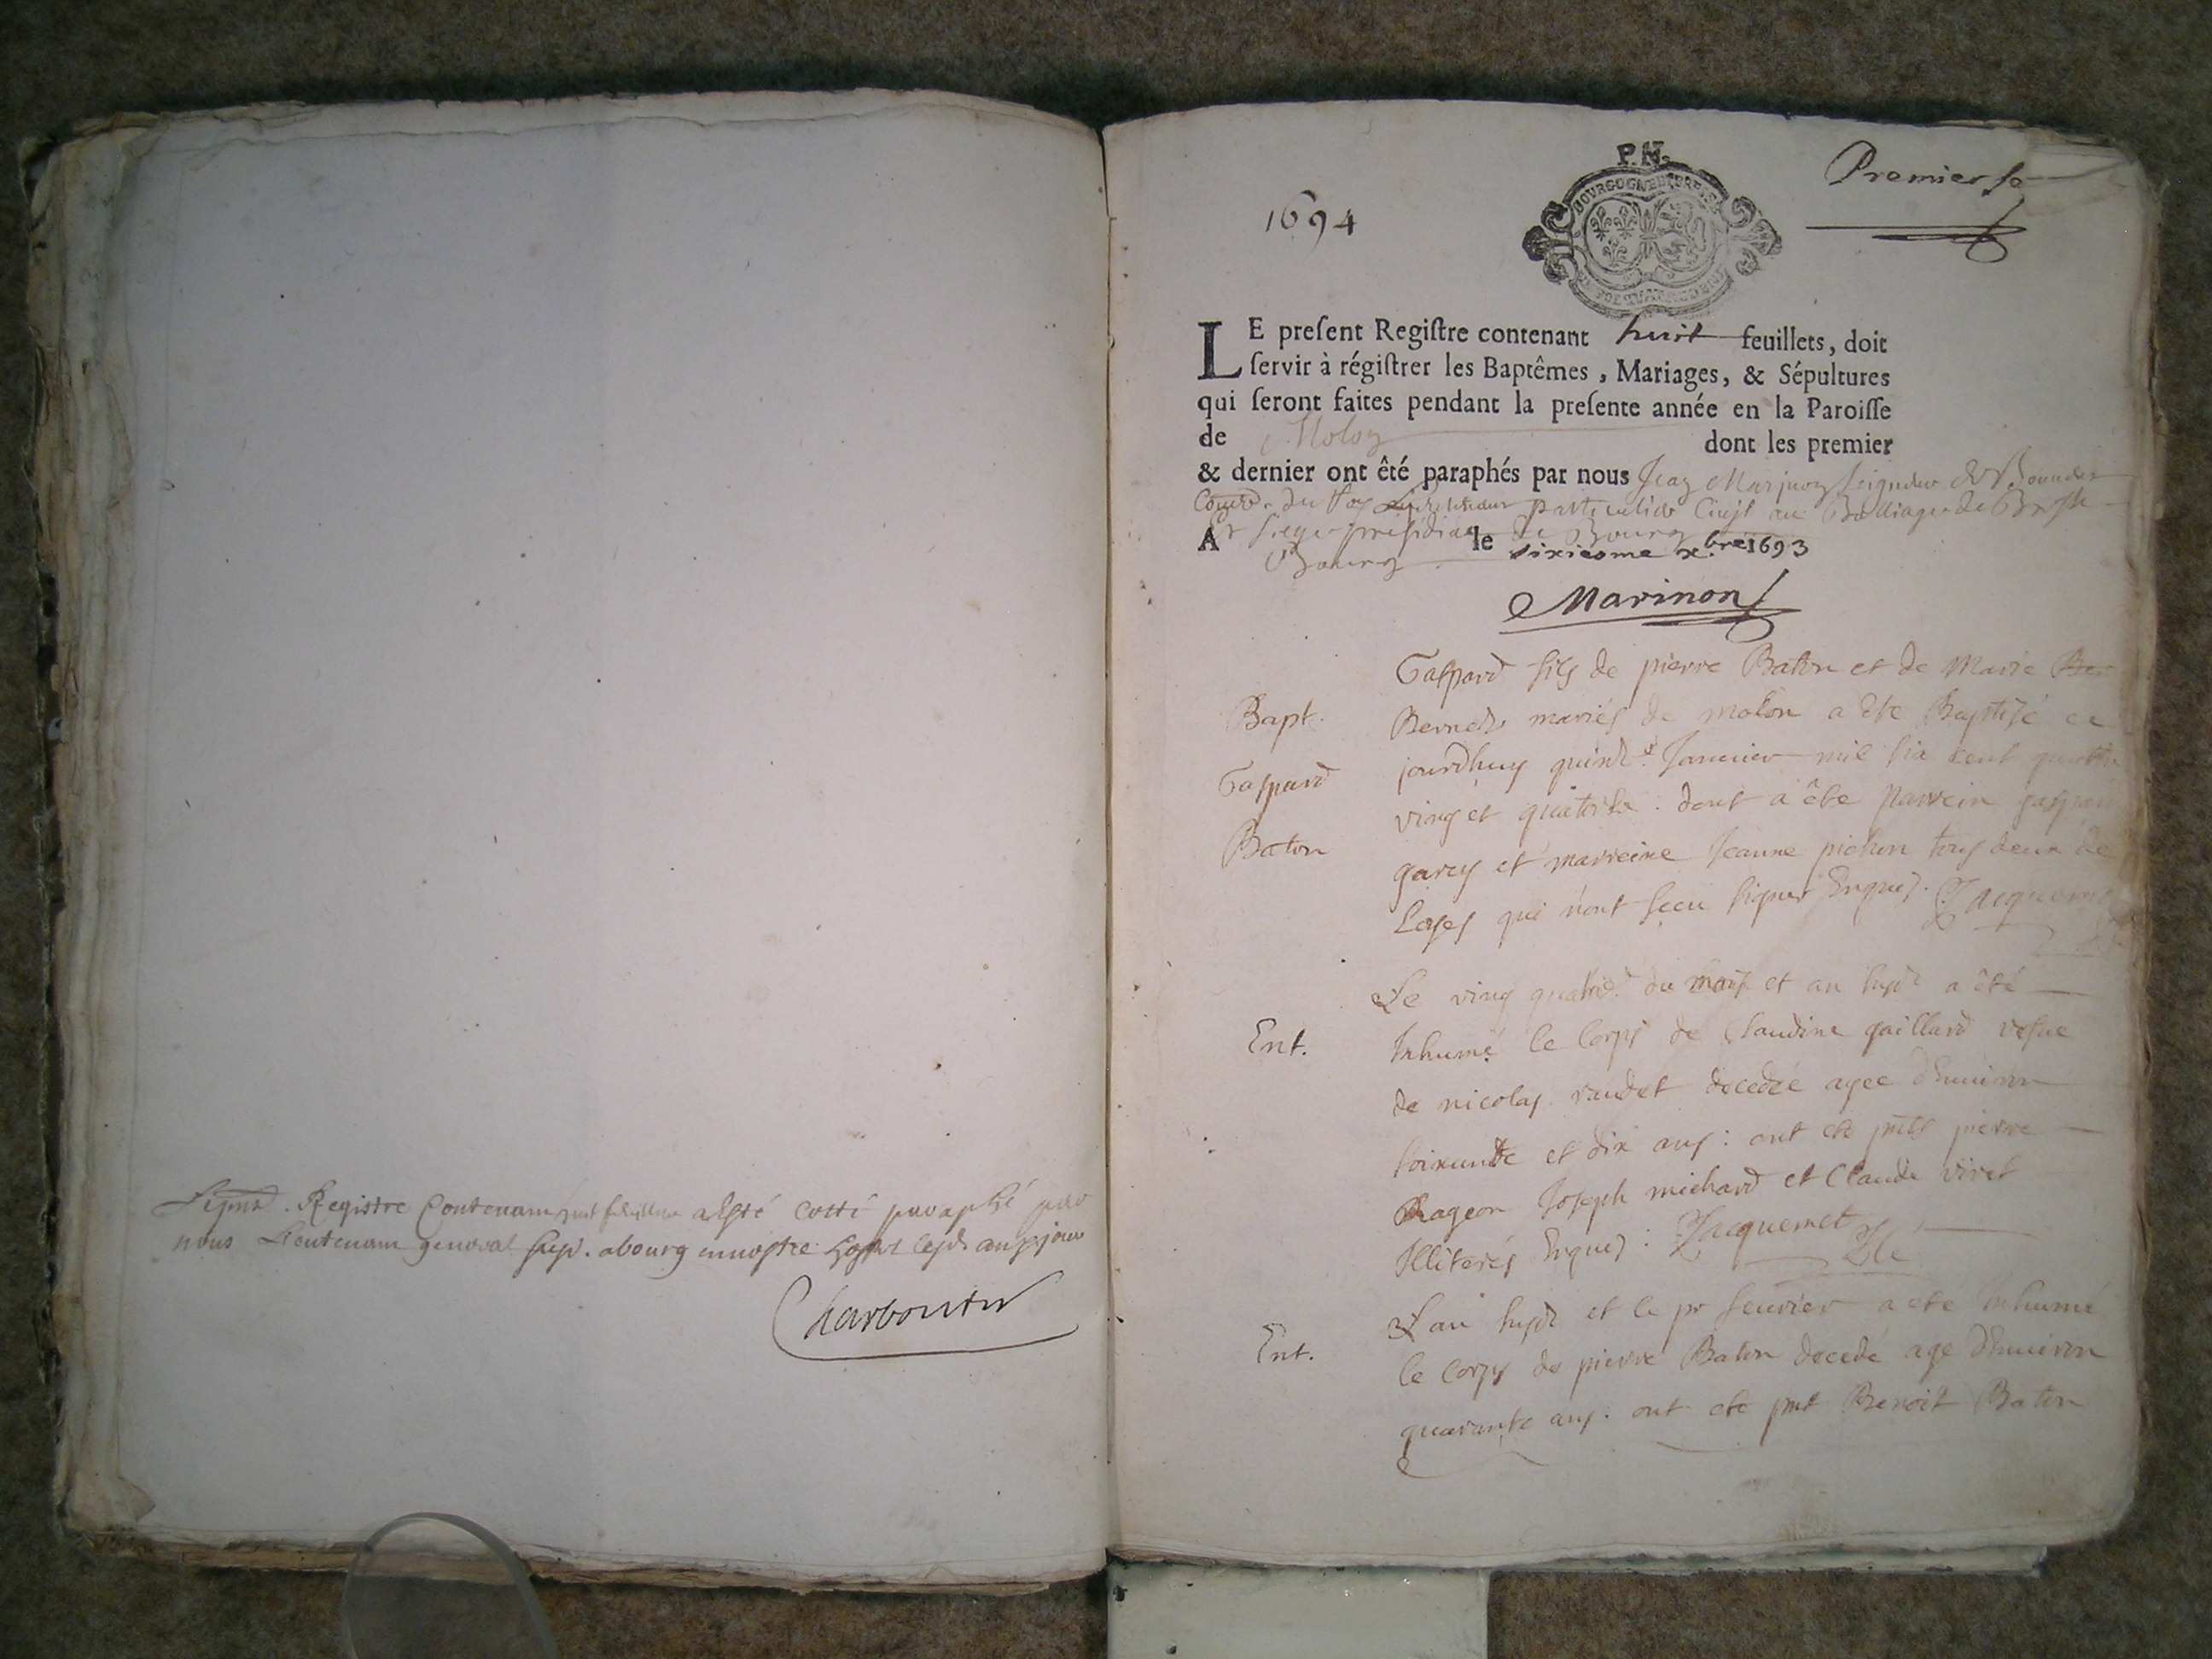 Registre Contenant huit feuillets a esté cotté paraphé par
nous Lieutenant general susd. a bourg en nostre hostel les jour
Charbonnier
P.N.
1694
Premier fe
LE preſent Regiſtre contenant huit feuillets, doit
ſervir à régiſtrer les Baptêmes, Mariages, & Sépultures
qui ſeront faites pendant la preſente année en la Paroiſſe
de Molon dont les premier
& dernier ont êté paraphés par nous Jean Marinon Seigneur
du Roy Lieutenant particulier au Balliage de Bresse
Et Siege presidial de Bourg
A Bourg le sixiesme xbre 1693
Marinon
Bapt.
Gaspard
Baton
Gaspard fils de pierre Baton et de Marie Ber
Bernet mariés de molon a été Baptisé ce
jourdhuy Januier mil six cent quattre
ving et quatorse. dont a êté parrein gaspar
garcy et marreine Jeanne pichon tous deux de
Loyes qui n'ont sceu signer Enquis. Jacquemet
Ent.
Le ving du mois et an susd a êté
Inhumé le corps de Claudine gaillard vefue
de nicolas raudet decedée agée d'enuiron
soixante et dix ans: ont eté pnts pierre
Rageon Joseph michard et Claude viret
Illiterés Enquis: Jacquemet
Ent.
L'an susd et le pr feurier a eté Inhumé
le corps de pierre Baton decedé agé d'enuiron
quarante ans. ont eté pnt Benoit Baton